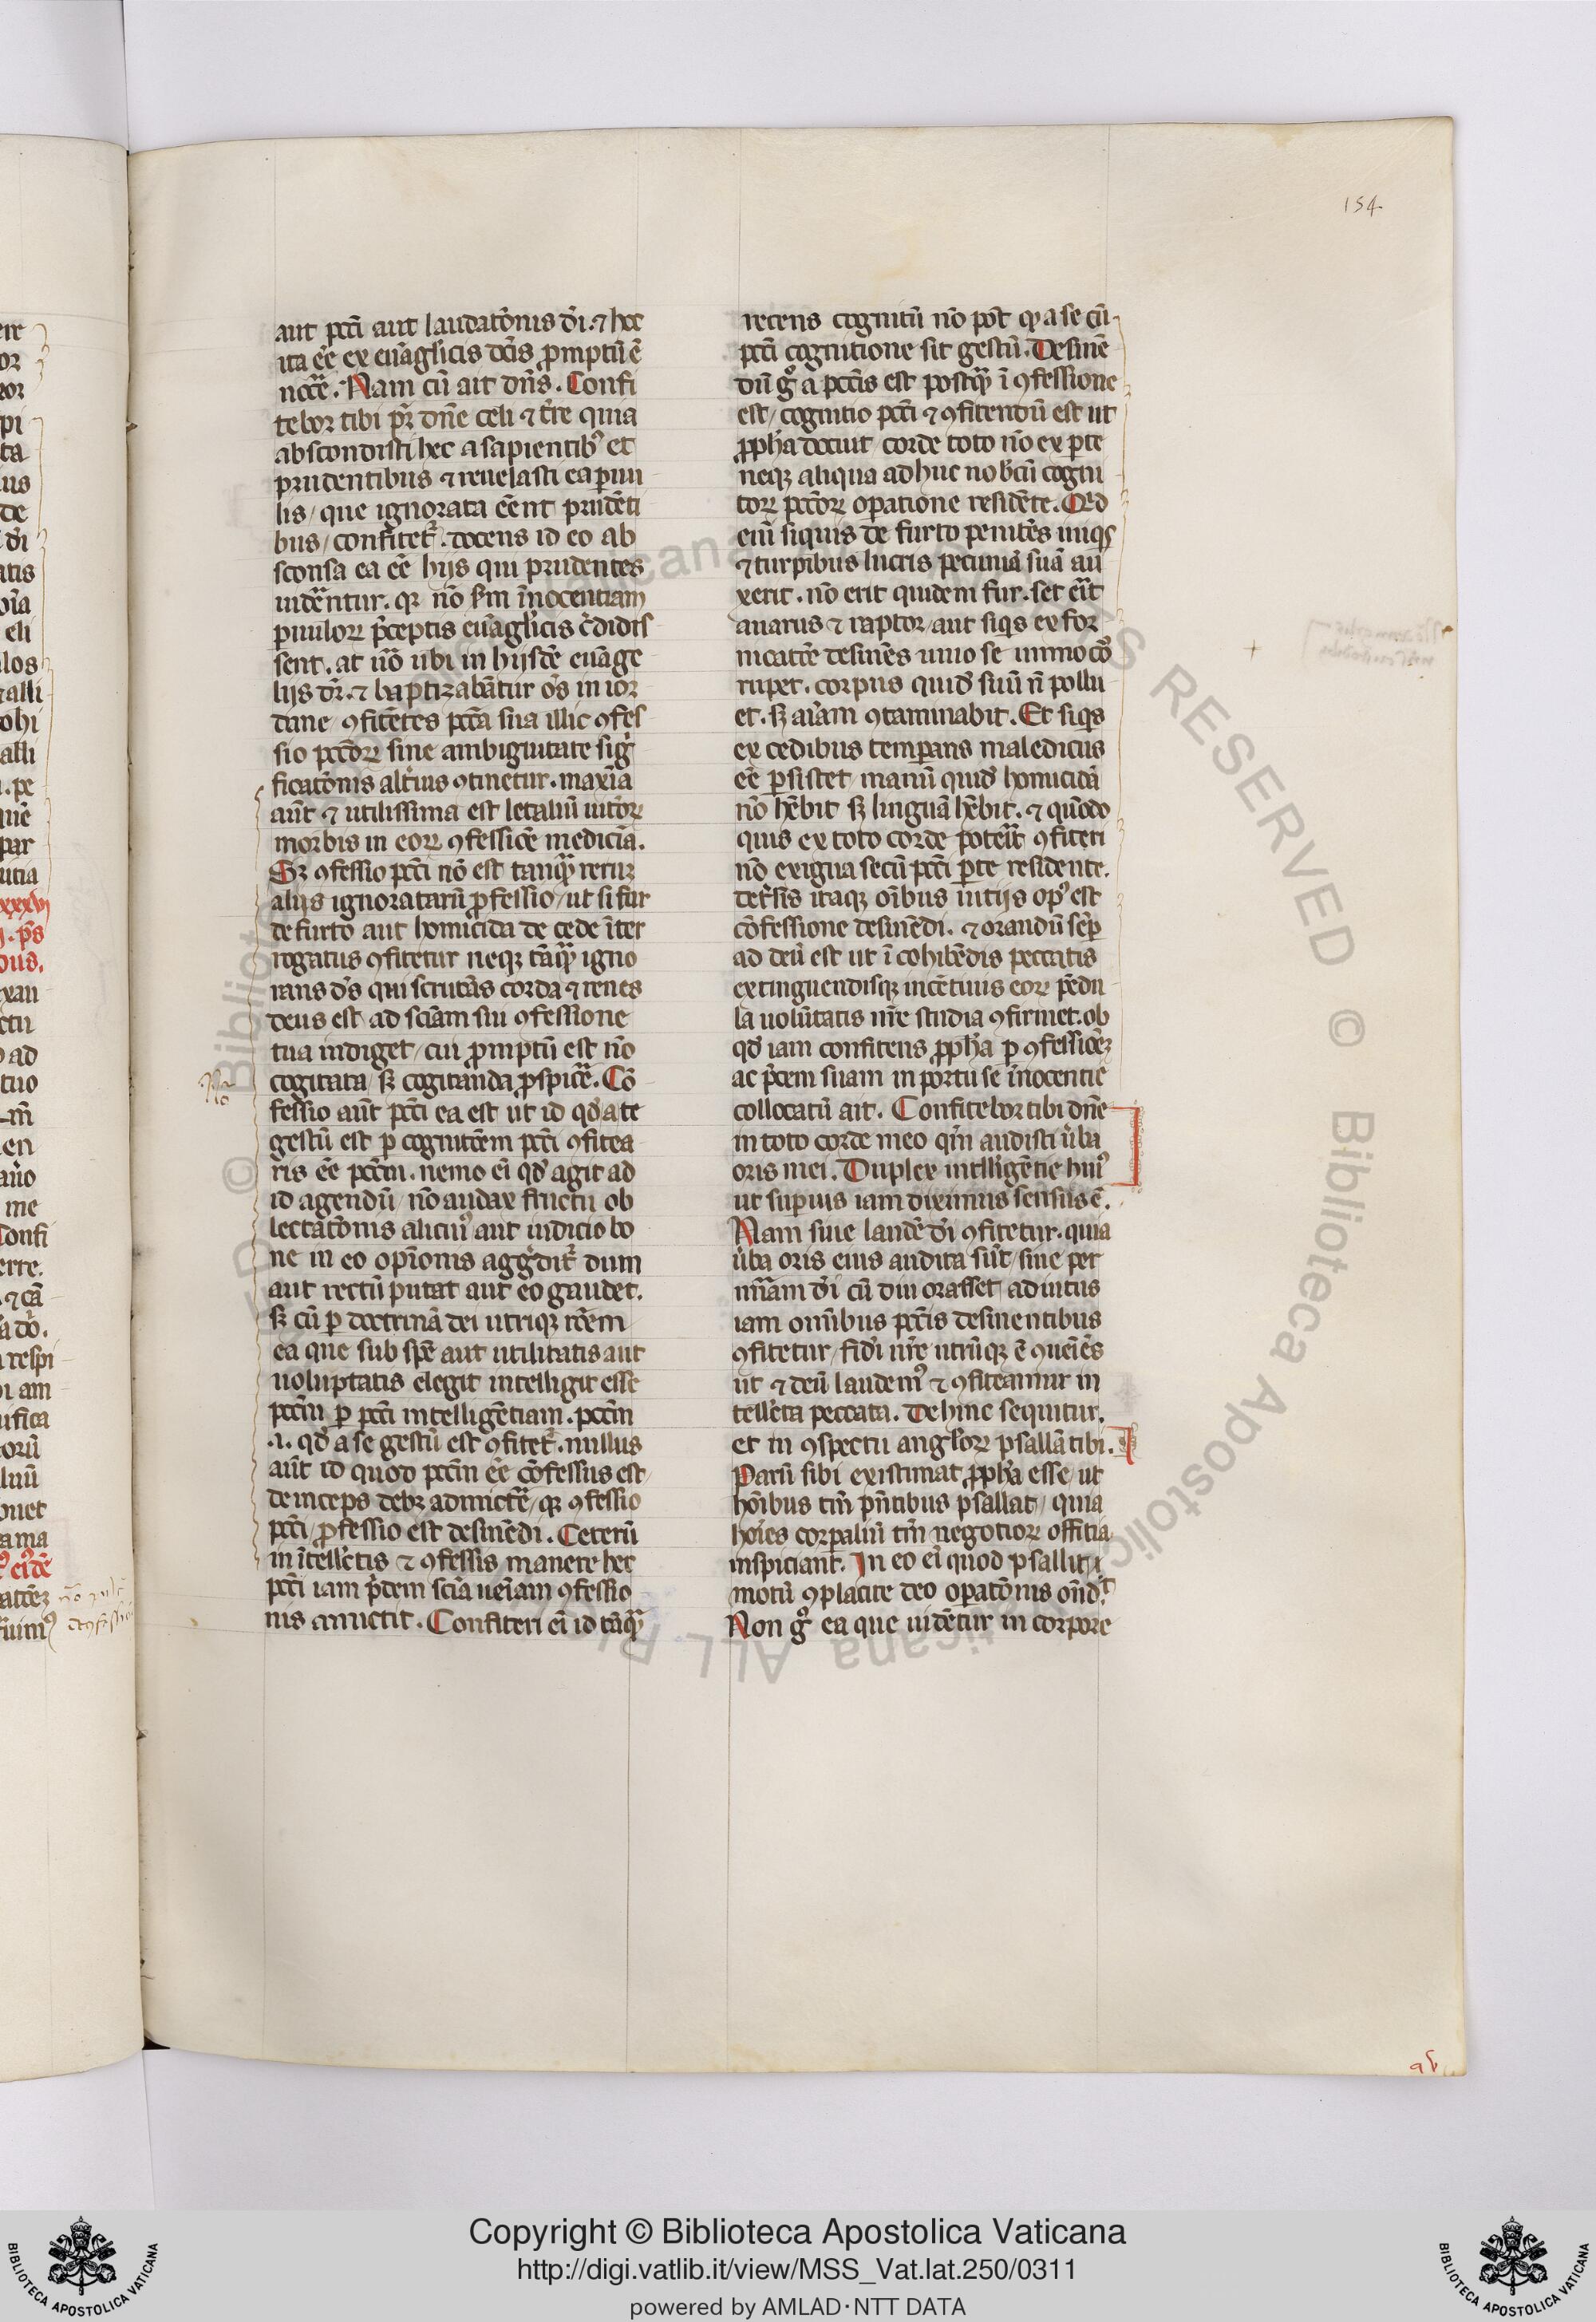 154
aut pcci aut laudatōnis dī. ⁊ hec
ita eē ex euāglicis dcīs ꝓmptū ē
nocc̄e. Nam cū ait dn̄s. Confi
tebor tibi pr̄ dn̄e celi ⁊ t̄re quia
abscondisti hec a sapientibꝰ et
prudentibus ⁊ reuelasti ea ꝑuu
lis / que ignorata eēnt prudēti
bus / confitet᷑. docens id eo ab
sconsa ea eē hijs qui prudentes
uidentur. qꝛ nō ẜm īnocentiam
ꝑuuloꝝ p̄ceptis euāglicis c̄didis
sent. at ūo ubi in hijsdē euāge
lijs dr̄. ⁊ baptizabātur oēs in ior
dane / ꝯfitētes pccā sua illic ꝯfes
sio pccōꝝ sine ambiguitate sig
ficatōnis alt̄ius ꝯtinetur. maxīa
aūt ⁊ utilissima est letaliū uitioꝝ
morbis in eoꝝ ꝯfessiōe mediciā.
Sꝫ ꝯfessio pcci nō est tanqᷓ reruꝫ
alijs ignoratarū ꝓfessio / ut si fur
de furto aut homicida de cede īter
rogatus ꝯfitetur neqꝫ tāqᷓ igno
rans dꝰs qui scrutās corda ⁊ renes
deus est / ad sciam sui ꝯfessione
tua indiget / cui ꝓmptū est nō
cogitata / sꝫ cogitanda ꝓspicē. Cō
fessio aūt pcci ea est ut id qd̄ a te
gestū est ꝑ cognitōem pcci ꝯfitea
ris eē pccm. nemo eī qd̄ agit ad
id agendū / nō audax fructu ob
lectatōnis alicuiꝰ aut iudicio bo
ne in eo opīonis aggᷓdit᷑ dum
aut rectū putat aut eo gaudet.
sꝫ cū ꝑ doctrinā dei utriqꝫ rōem
ea que sub spē aut utilitatis aut
uoluptatis elegit intelligit esse
pccm ꝑ pcci intelligētiam. pccm
.i. qd̄ a se gestū est ꝯfitet᷑. nullus
aūt id quod pccm eē cōfessus est /
deinceps debꝫ admictē / qꝛ ꝯfessio
pcci / ꝓfessio est desinēdi. Ceterū
in ītell̄ctis ⁊ ꝯfessis manere hec
pcci iam p̄dem scia ueīam ꝯfessio
nis amictit. Confiteri eī id tāqᷓ
recens cognitū nō pōt qꝫ a se cū
pcci cognitione sit gestū. Desinē
dū gͦ a pccīs est postqᷓ ī ꝯfessione
est / cognitio pcci ⁊ ꝯfitendū est ut
ꝓpha docuit corde toto nō ex ꝑte
neqꝫ aliqua adhuc nobcū cogni
toꝝ pccōꝝ oꝑatione residēte. Qd
eni siquis de furto penitēs iniqꝭ
⁊ turpibus lucris pecuniā suā au
xerit. nō erit quidem fur. set erit
auarus ⁊ raptor / aut siqꝭs ex for
nicatōe desinēs uino se inmo cō
rupet. corpus quidē suū n̄ pollu
et. sꝫ aīam ꝯtaminabit. Et siqꝭs
ex cedibus temꝑans maledicus
eē ꝑsistet / manū quidē homicidā
nō hēbit sꝫ linguā hēbit. ⁊ quōdo
quis ex toto corde potēit ꝯfiteri
nō exigua secū pcci ꝑte residente.
det̄sis itaqꝫ oībus uitijs opꝰ est
cōfessione desinēdi. ⁊ orandū sēꝑ
ad deū est ut ī cohibēdis peccatis
extinguendisqꝫ incētiuis eoꝝ pēdu
la uolūtatis nr̄e studia ꝯfirmet. ob
qd̄ iam confitens ꝓpha ꝑ ꝯfessiōeꝫ
ac p̄cem suam in portu se īnocentie
collocatū ait. Confitebor tibi dn̄e
in toto corde meo qm̄ audisti ūba
oris mei. Duplex intlligētie huiꝰ
ut suꝑius iam diximus sensus ē.
Nam siue laudē dī ꝯfitetur. quia
ūba oris eius audita sūt / siue ꝑ
mīam dī cū diu orasset adiutus
iam omībus pccīs desinentibus
ꝯfitetur / fidī nr̄e utrūqꝫ ē ꝯueīēs
ut ⁊ deū laudemꝰ ⁊ ꝯfiteamur in
tell̄cta peccata. Dehinc sequitur.
et in ꝯspectu angl̄oꝝ psallā tibi.
Parū sibi existimat ꝓpha esse / ut
hoībus tm̄ pn̄tibus psallat / quia
hoīes corꝑaliū tm̄ negotioꝝ offitia
inspiciant. In eo eī quod psallit /
motū ꝯplacite deo oꝑatōnis oñd.
Non gͦ ea que uidētur in corpore
Copyright © Biblioteca Apostolica Vaticana
http://digi.vatlib.it/view/MSS_Vat.lat.250/0311
powered by AMLAD·NTT DATA